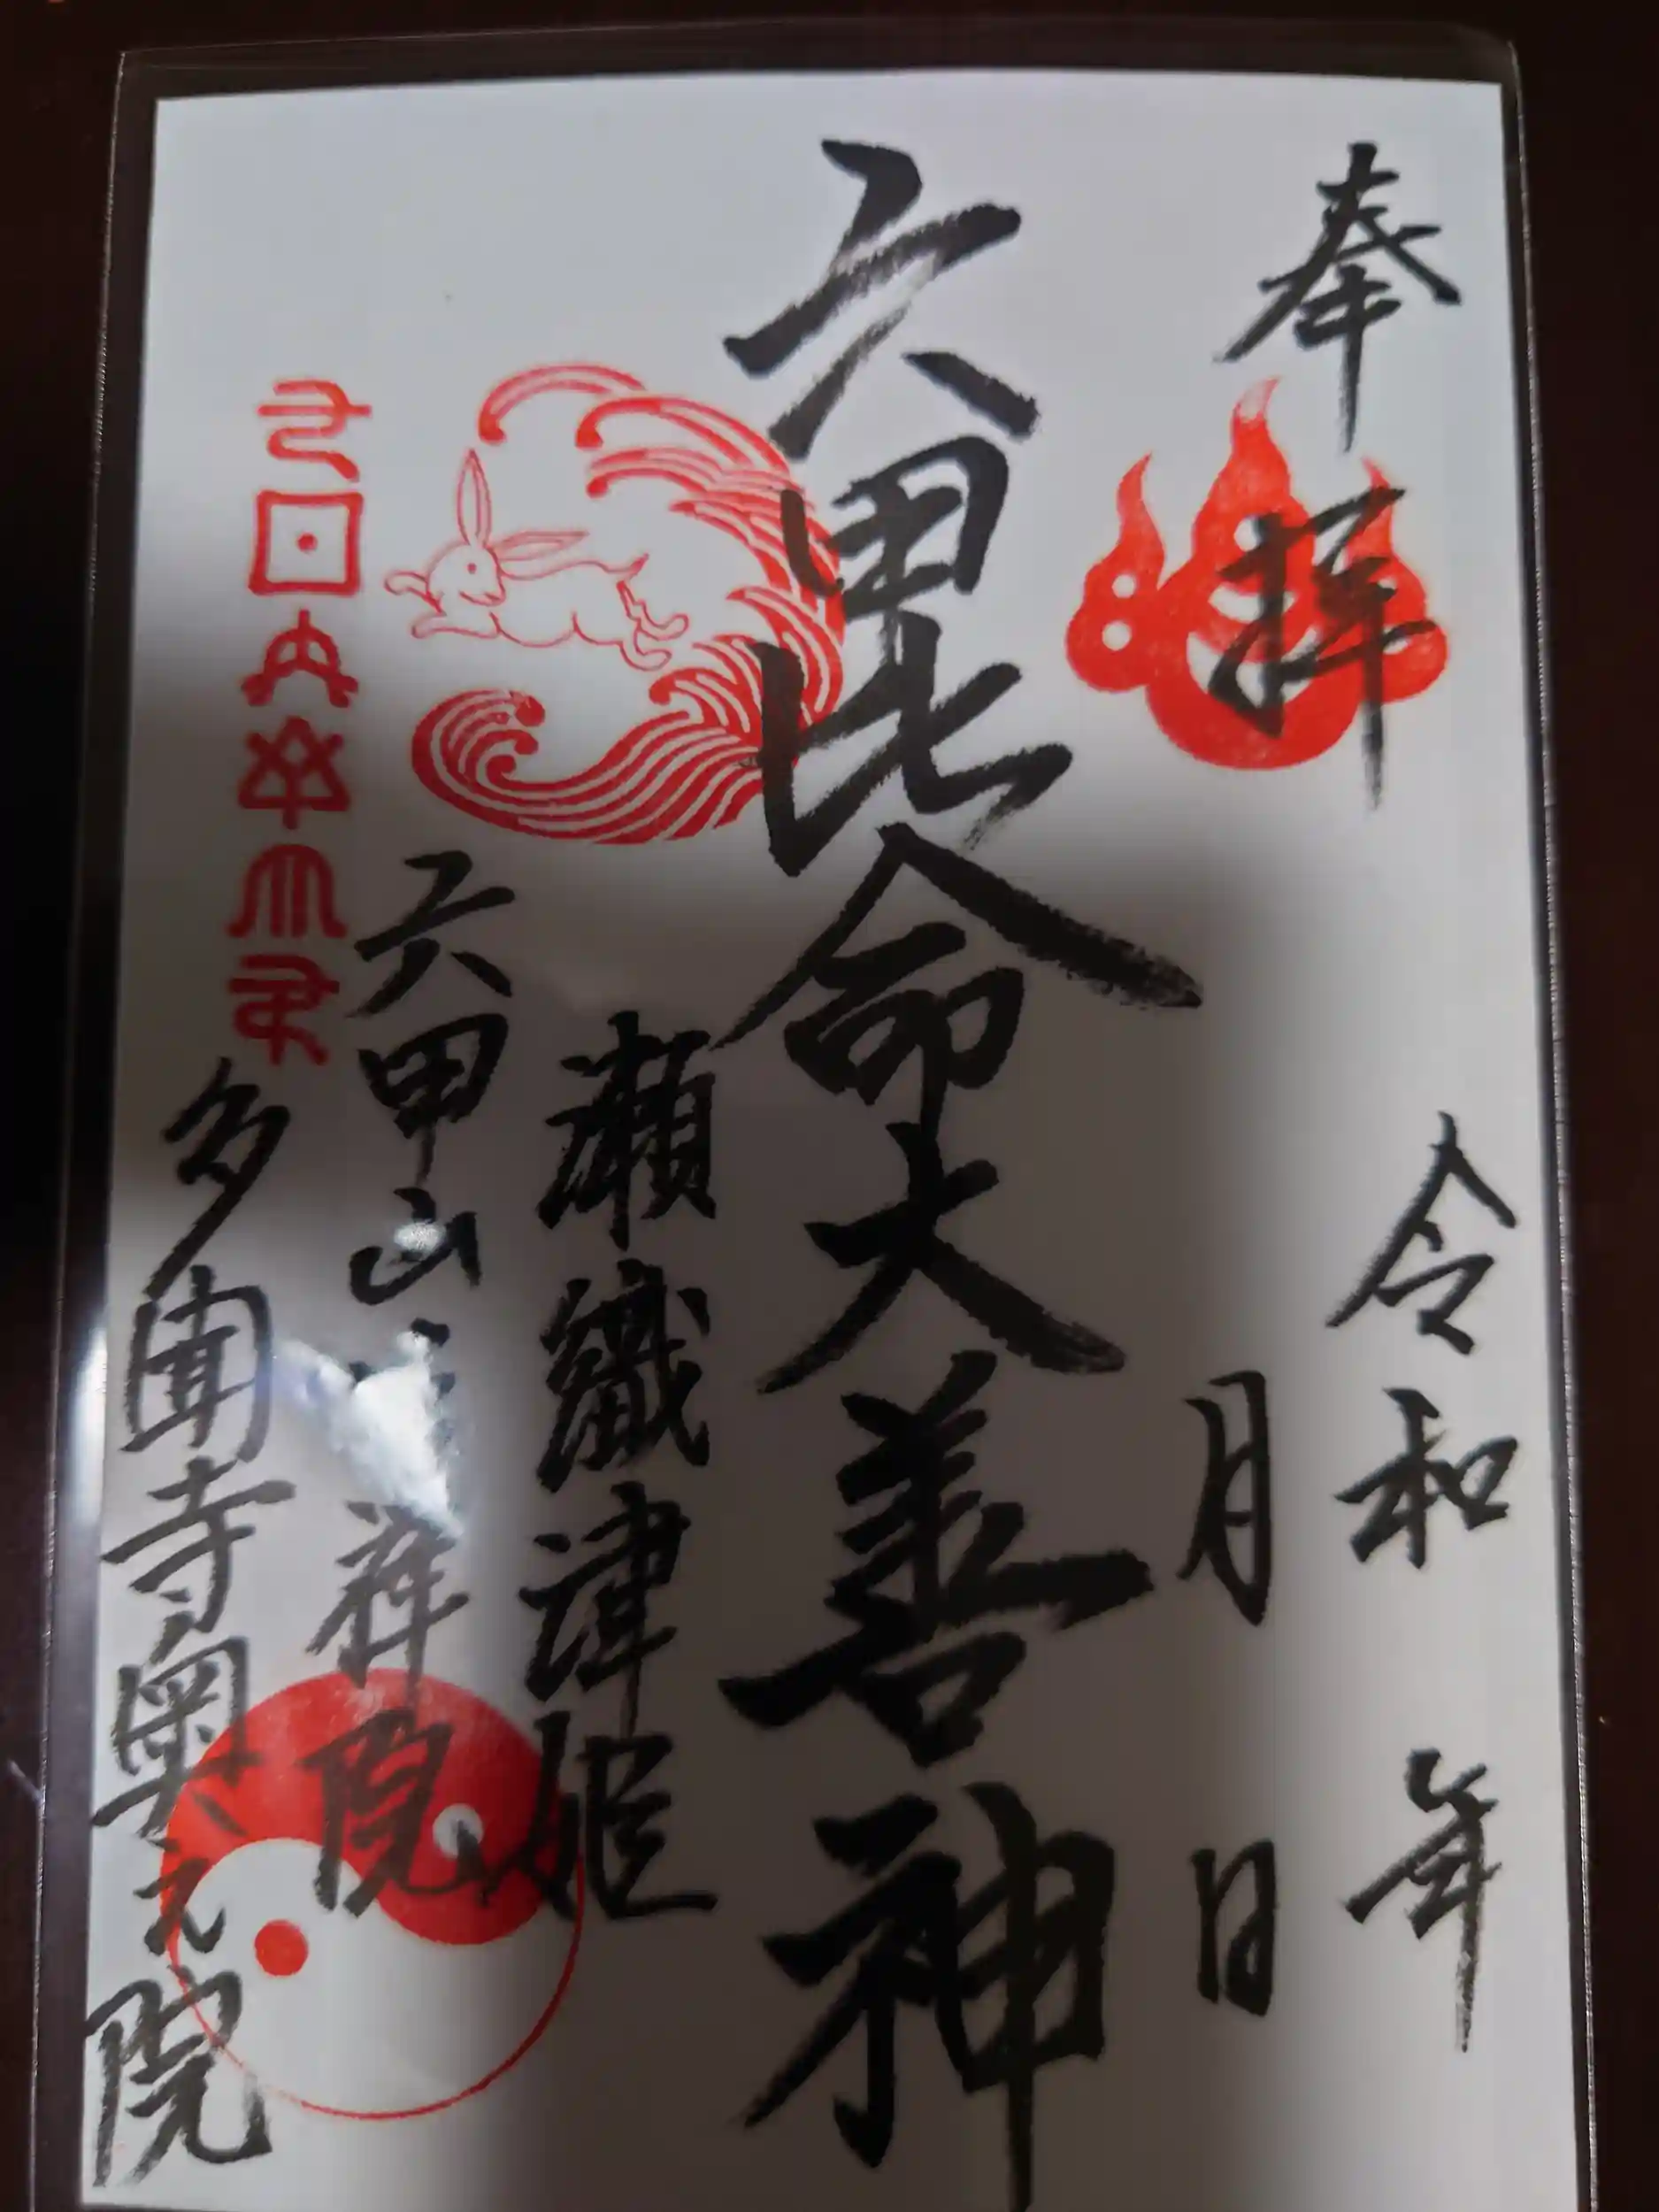 奉拝
令和 年
月 日
六甲比命大善神
瀬織津姫
六甲山 祥院
多聞寺奥之院